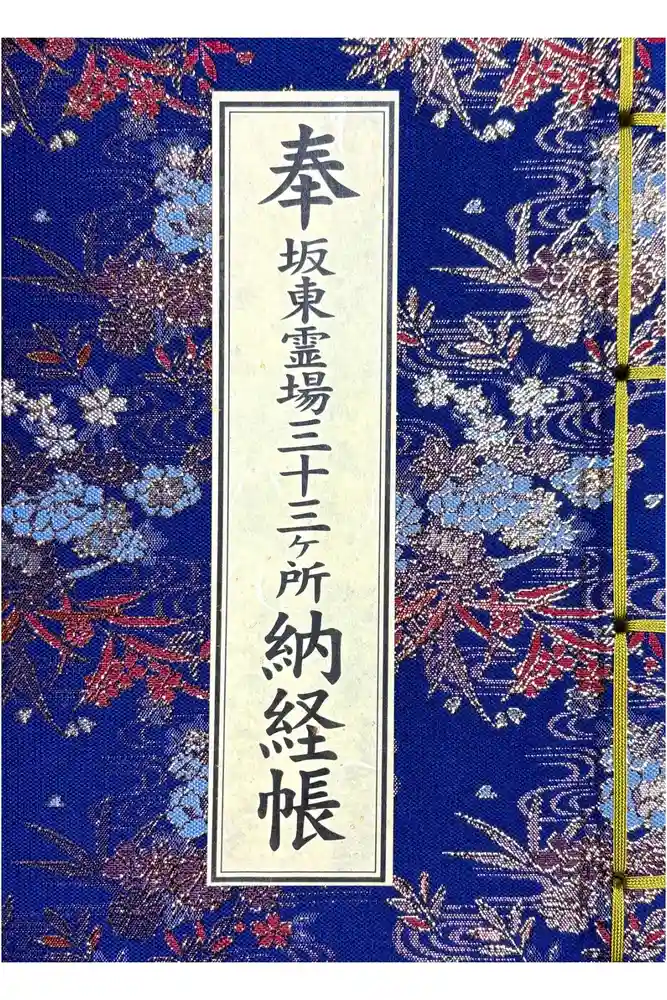 奉坂東霊場三十三ヶ所納経帳